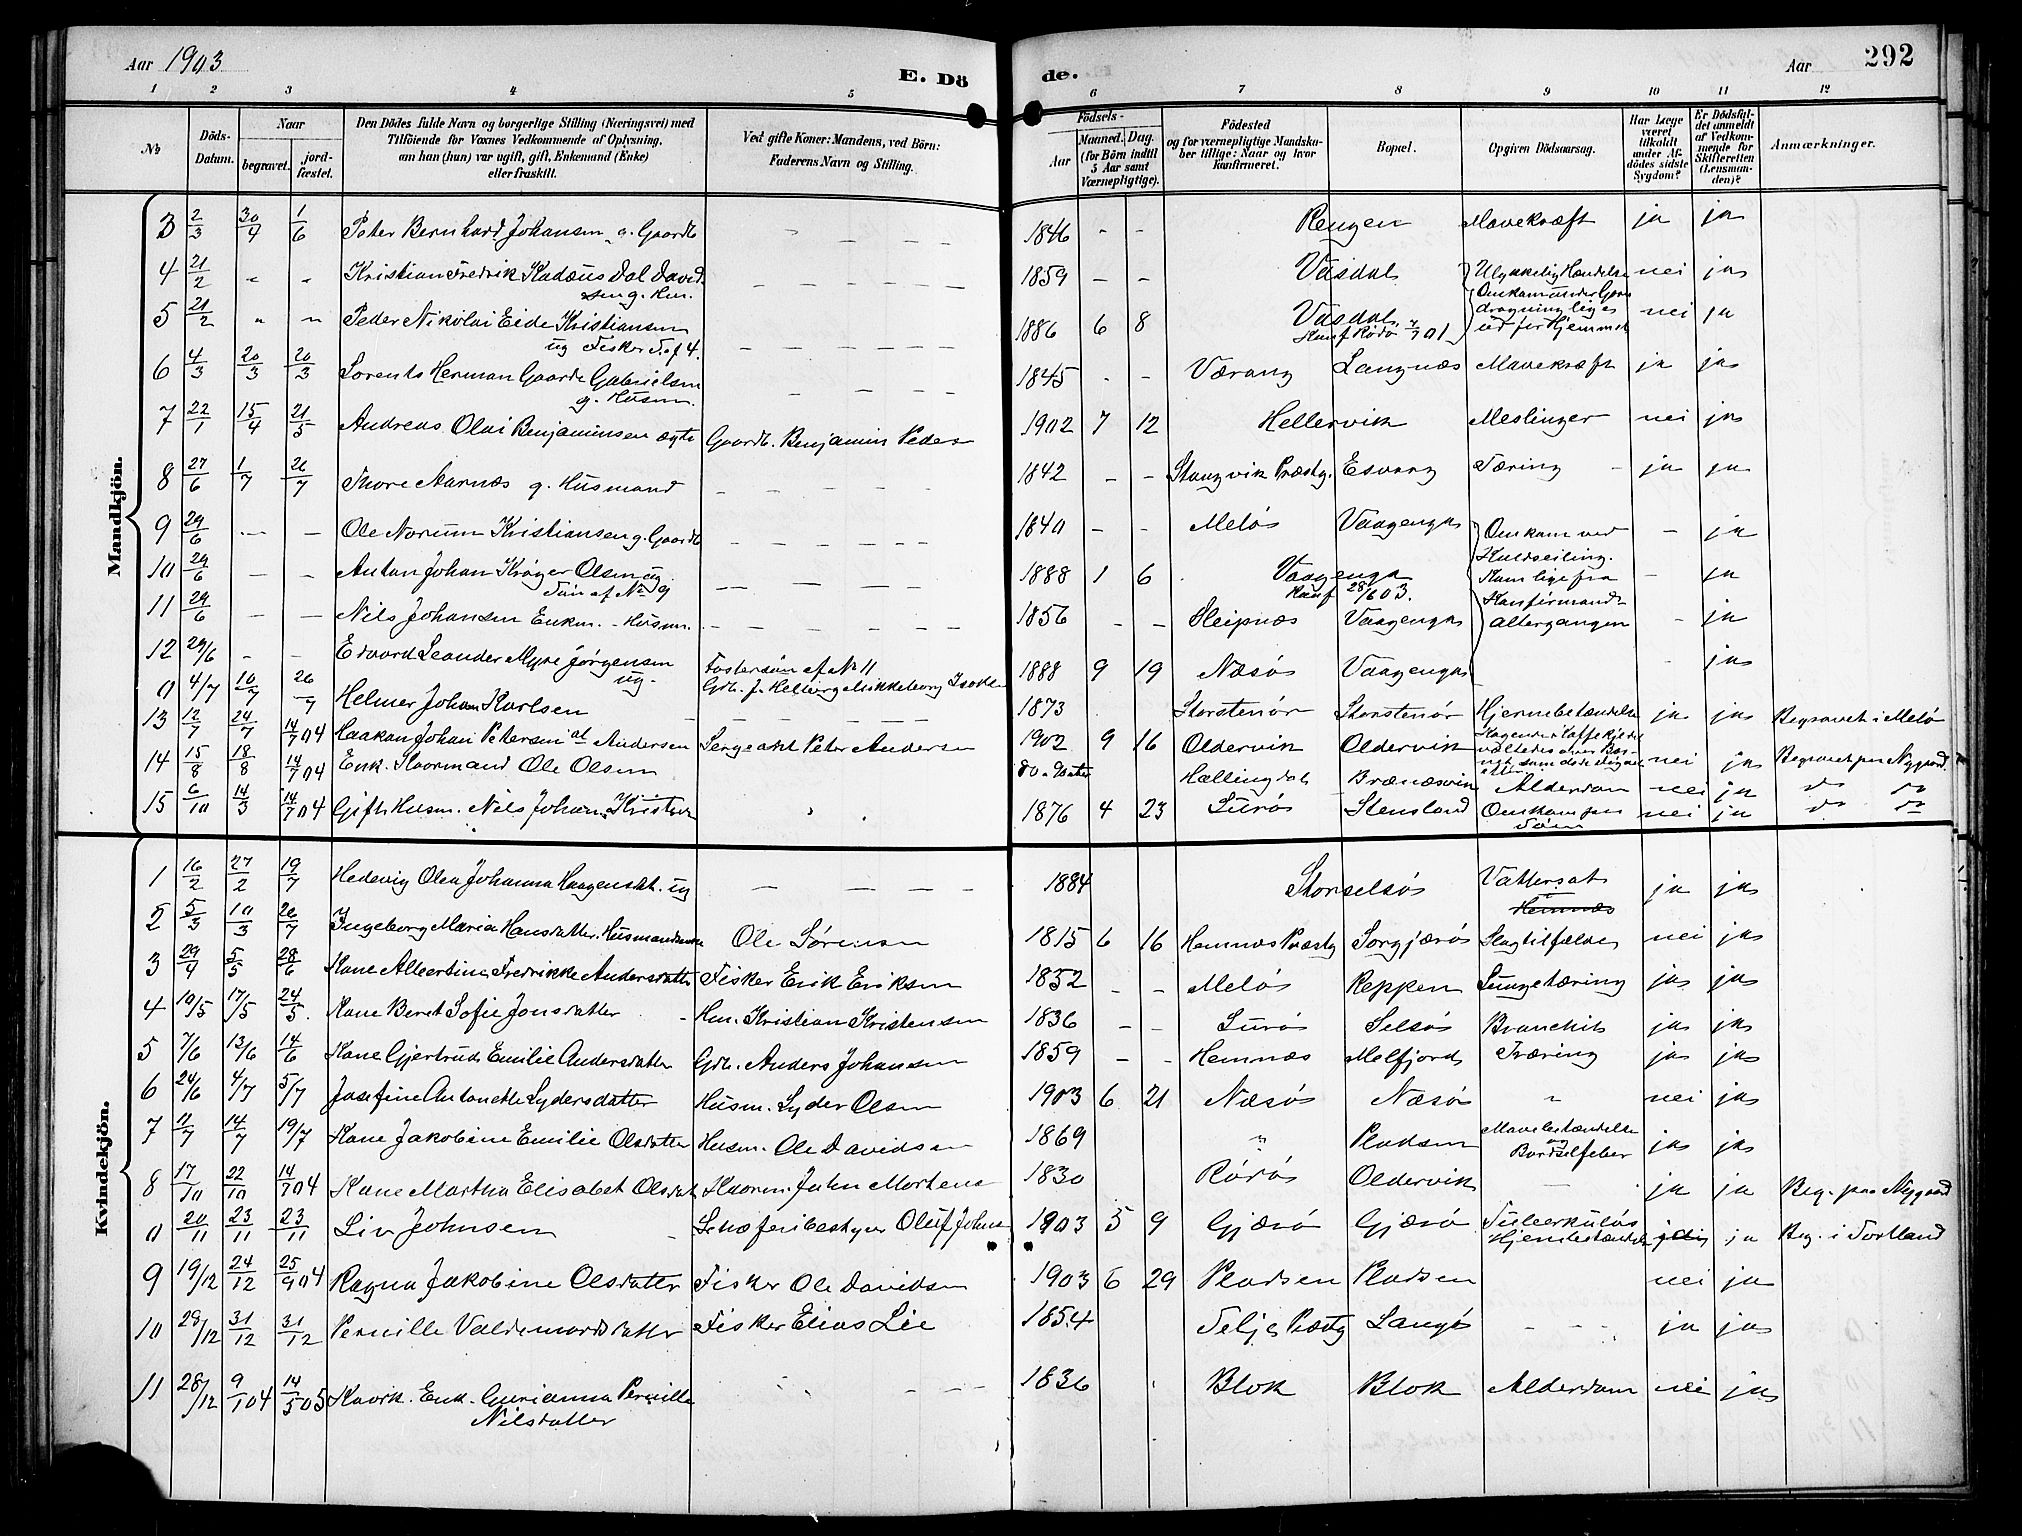 Aar 1903
E. Dö
de.
Aar
292
1 2 3 4 5 6 7 8 9 10 11 12
№
Döds-Datum.
Naar
begravet.
jord-fæstet.
Den Dödes fulde Navn og borgerlige Stilling (Næringsvei) med
Tilföiende for Voxnes Vedkommende af Oplysning,
om han (hun) var ugift, gift, Enkemand (Enke)
eller fraskilt.
Ved gifte Koner: Mandens, ved Börn:
Faderens Navn og Stilling.
Födsels-
Aar
Maaned. Dag.
(for Börn indtil
5 Aar samt
Værnepligtige).
Födested
og for værnepligtige Mandska-
ber tillige: Naar og hvor
konfirmeret.
Bopæl.
Opgiven Dödsaarsag.
Har Læge
været
tilkaldt
under Af-
dödes sidste
Sygdom?
Er Dödsfal-
det anmeldt
af Vedkom-
mende for
Skifteretten
(Lensman-
den)?
Anmærkninger.
Mandkjön.
3 2/3 30/4 1/6 Peter Bernhard Johansen g. Gaardb. – – – – 1846 - - Rengen Mavekræft ja ja
4 21/2 " " Kristian Fredrik Kadæus Dal David-
sen g. Hus. – – – – 1859 - - Vasdal Ulykkelig Hændelse nei ja
5 21/2 " " Peder Nikolai Eide Kristiansen
ug Fisker S. af 4. – – – – 1886 6 8 Vasdal, Konf Rödö 7/7 01 Omkom under Garn
dragning lige
ud for Hjemmet nei ja
6 4/3 20/3 20/3 Lorents Herman Gaarde Gabrielsen
g. Husm. – – – 1845 - - Værang Langnæs Mavekræft ja ja
7 22/1 15/4 21/5 Andreas Olai Benjaminsen ægte Gaardb. Benjamin Peders 1902 7 12 Hellervik Meslinger nei ja
8 27/6 1/7 26/7 Thore Aarnæs g. Husmand – – – – 1842 - - Stangvik Præstg. Esvang Tæring ja ja
9 29/6 – – Ole Norum Kristiansen g. Gaardb. – – – – 1840 - - Melö Vaagenga Omkom ved – ja
10 29/6 – – Anton Johan Kröger Olsen ug.
Sön af No 9 – – – – 1888 1 6 Vaagenga
Konf 28/6 03. Kuldseiling.
Kom lige fra – ja
11 29/6 – – Nils Johansen Enkm. - Husm. – – – – 1856 - - Sleipnæs Vaagenga Konfirmand-
altergangen – ja
12 29/6 - - Edvard Leander Myre Jörgensen
ug. Fostersön af No 11 1888 9 19 Næsö Vaagenga - ja
0 4/7 10/7 26/7 Helmer Johan Karlsen 1873 Storstenör Storstenör Hjernebetændelse ja ja Begravet i Melö
13 12/7 24/7 14/7 04 Haakon Johan Petersen Andersen Sergeant Peter Andersen 1902 9 16 Oldervik Oldervik nei ja Begravet paa Nygaard
14 15/8 18/8 14/7 04 Enk. Ole Olsen 80 Hallingdal Alderdom nei ja do do
15 6/10 14/3 14/7 04 Gift Husm. Nils Johan 1876 4 23 Lurö Stensland Omkom paa
Söen nei ja do do
Kvindekjön.
1 16/2 27/2 19/7 Hedevig Olea Johanna Haagensdt. ug – – – – 1884 Storselsö Vattersot ja ja
2 5/3 10/3 26/7 Ingeborg Maria Hansdatter. Husmandsenke Ole Sörensen 1815 6 16 Hemnæs Præstg Sorgjærö Slagtilfælde nei ja
3 29/4 5/5 28/6 Kone Albertine Fredrikke Andersdatter Fisker Erik Eriksen 1832 - - Melö Reppen Lungetæring ja ja
4 10/5 17/5 24/5 Kone Beret Sofie Jonsdatter Hm. Kristian Kristensen 1836 - - Lurö Selsö Bronchit ja ja
5 7/6 13/6 14/6 Kone Gjertrud Emilie Andersdatter Gdb. Anders Johansen 1859 - - Hemnæs Melfjord Tæring ja ja
6 24/6 4/7 5/7 Josefine Antonette Lydersdatter Husm. Lyder Olsen 1903 6 21 Næsö Næsö " nei ja
7 11/7 14/7 19/7 Kone Jakobine Emilie Olsdatter Husm. Ole Davidsen 1869 " Pladsen Mavebetændelse
og
Barselfeber ja ja
8 17/10 22/10 14/7 04 Kone Martha Elisabet Olsdat Kaarm. John Mortens 1830 Rörös Oldervik – ja ja Beg. paa Nygaard
0 20/11 23/11 23/11 Liv Johnsen Oluf Johns 1903 5 9 Gjærö Gjærö Tuberkulös
Hjernebetændelse ja Beg. i Tortland
9 19/12 24/12 25/9 04 Ragna Jakobine Olsdatter Fisker Ole Davidsen 1903 6 29 Pladsen Pladsen nei ja
10 28/12 31/12 31/12 Pernille Valdemarsdatter Fisker Elias Lie 1854 Selje Præstg Langö - - - ja ja
11 28/12 9/1 04 14/5 05 Kaark. Enk. Gurianna Pernille
Nilsdatter – – 1836 Blok Blok Alderdom nei ja